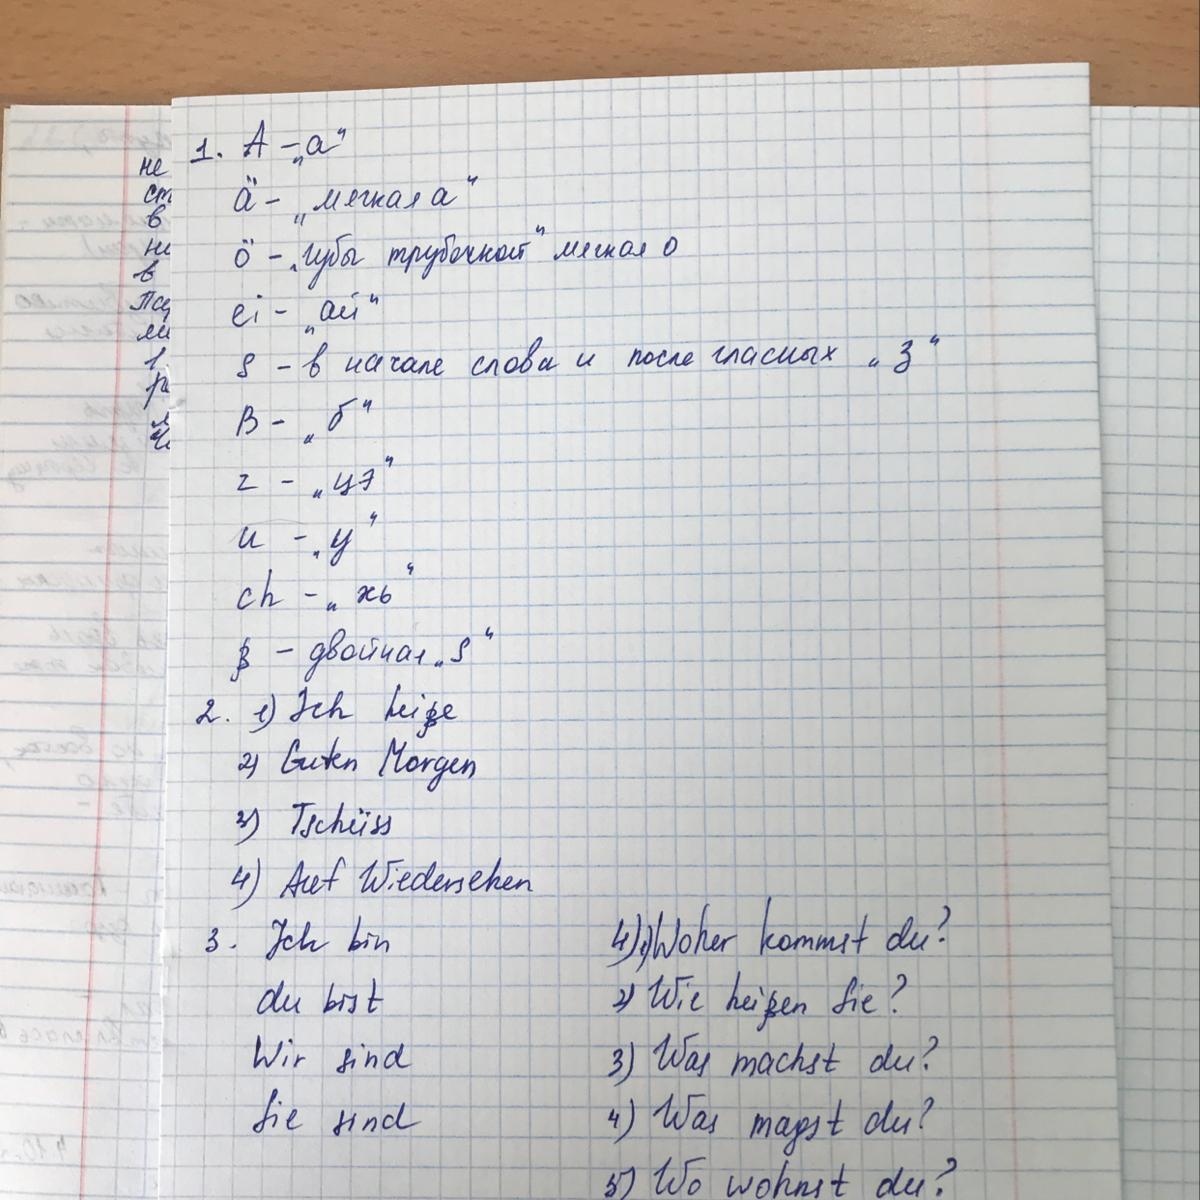 1. A – „а“
ä – „мягкая а“
ö – „губы трубочкой“ мягкая о
ei – „ай“
s – в начале слова и после гласных „З“
B – „б“
z – „цэ“
u – „у“
ch – „хь“
ß – двойная „s“
2. 1) Ich heiße
2) Guten Morgen
3) Tschüss
4) Auf Wiedersehen
3. Ich bin
du bist
Wir sind
Sie sind
4) 1) Woher kommst du?
2) Wie heißen Sie?
3) Was machst du?
4) Was magst du?
5) Wo wohnst du?
не
ст
в
не
в